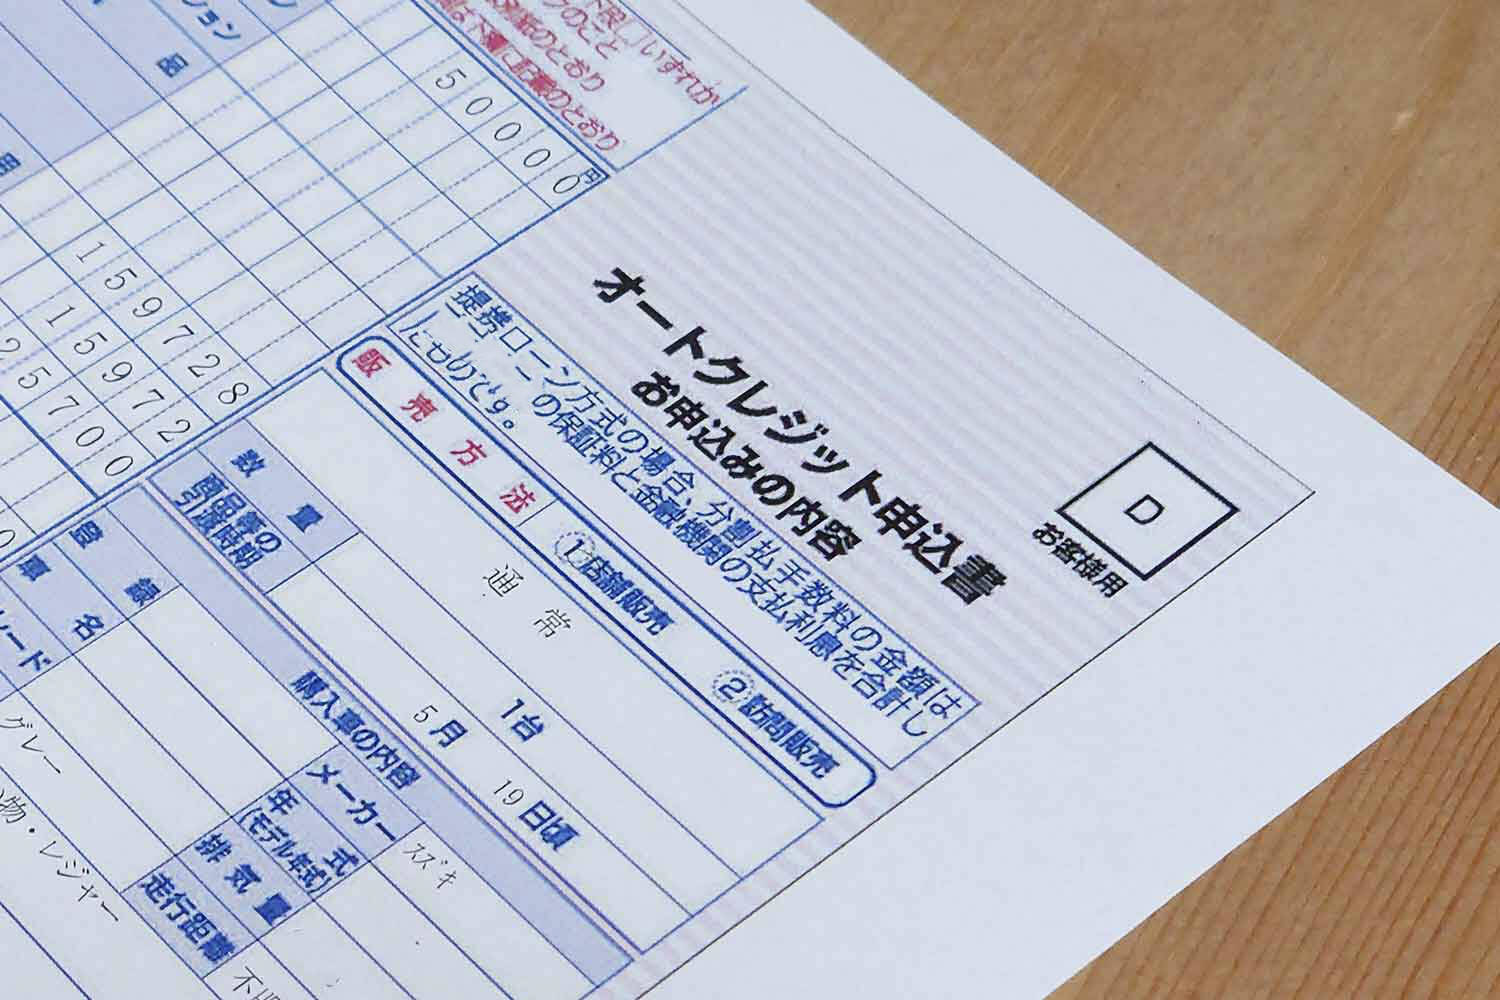 オートクレジット申込書
お申込みの内容
D
お客様用
提携ローン方式の場合、分割払手数料の金額は
の保証料と金融機関の支払利息を合計し
たものです。
販売方法
①店舗販売
②訪問販売
いずれか
のこと
のとおり
は下欄に記載のとおり
50000円
159728
15972
25700
数量
通常
1台
商品等の
引渡時期
5月
19日頃
購入車の内容
登録
車名
メーカー
スズキ
年式
(モデル年式)
排気量
走行距離
グレー
物・レジャー